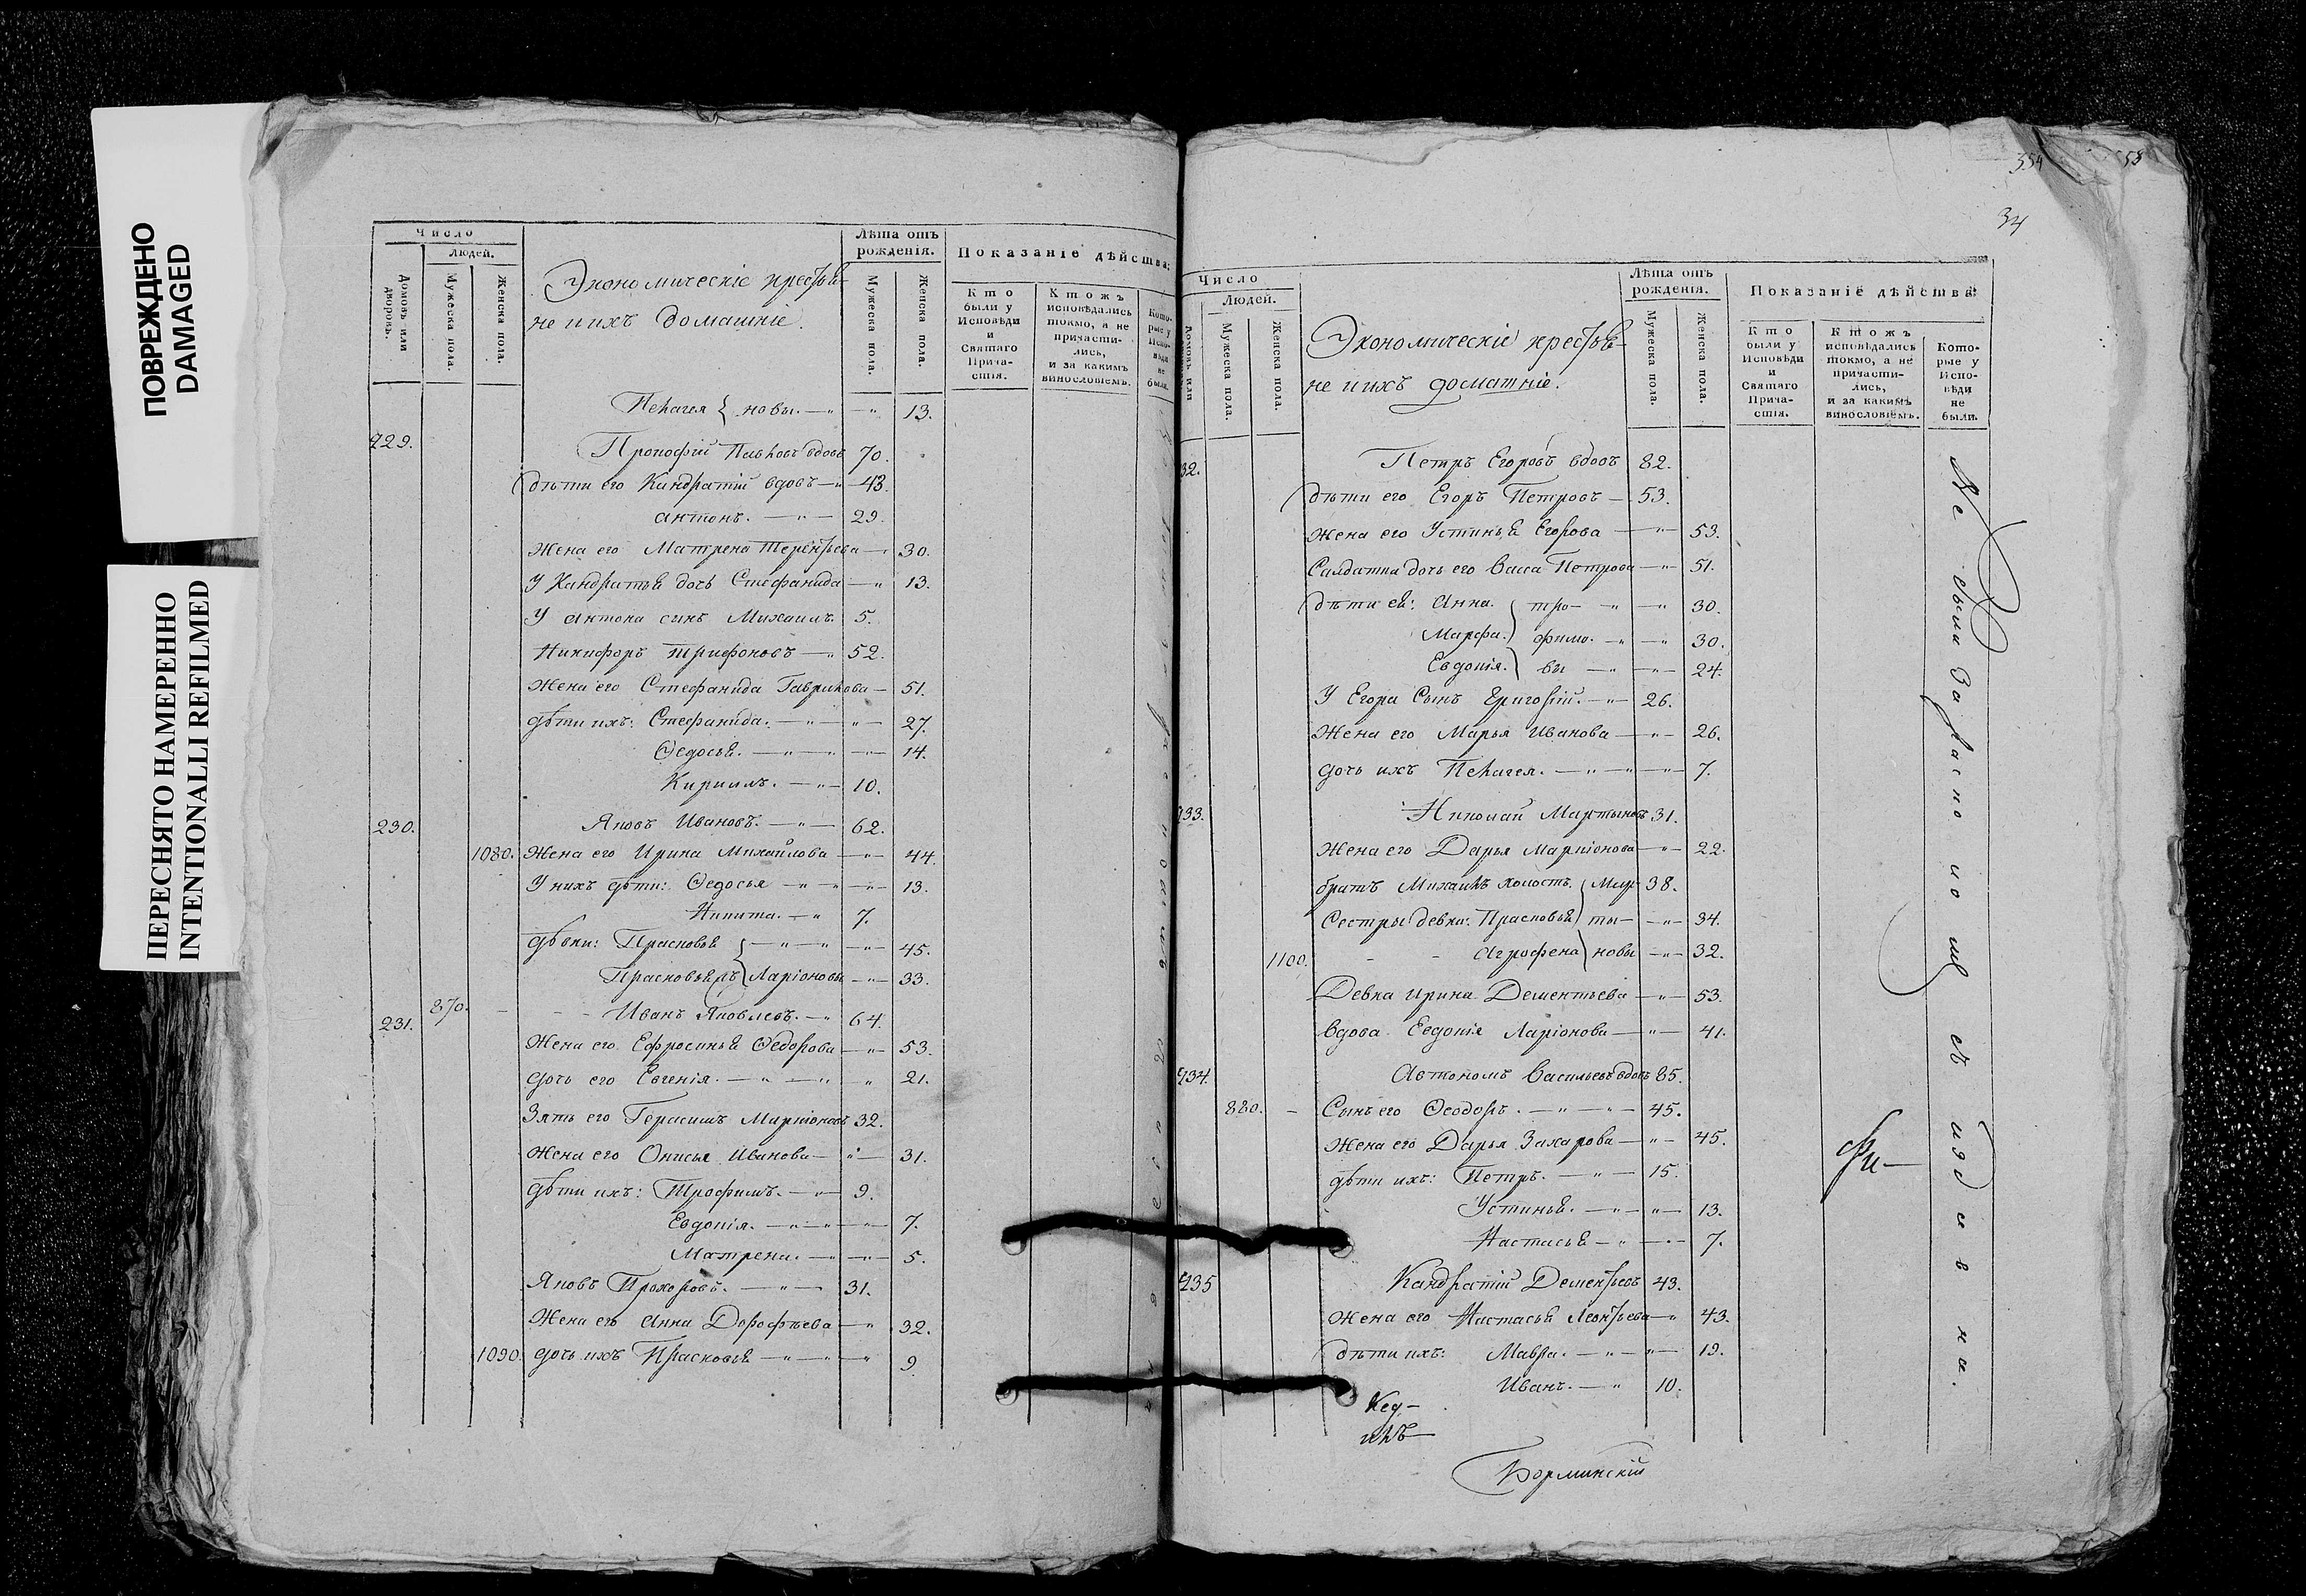 ПОВРЕЖДЕНО
DAMAGED
ПЕРЕСНЯТО НАМЕРЕННО
INTENTIONALLI REFILMED
Число
Людей.
Домовъ или дворовъ.
Мужеска пола.
Женска пола.
Экономическіе крестья-
не и ихъ домашніе.
Лѣта отъ рожденія.
Мужеска пола.
Женска пола.
Показаніе дѣйства:
Кто были у Исповѣди и Святаго Прича-стія.
Ктожъ исповѣдались токмо, а не причасти-лись, и за какимъ винословіемъ.
Кото-рые у Испо-вѣди не были.
Пелагея } новы. — 13.
229. Прокофій Павловъ вдовъ 70.
дѣти его Кандратій вдовъ — 43.
Антонъ. — 29.
Жена его Матрена Терентьева — 30.
У Кандратья дочь Стефанида — 13.
У Антона сынъ Михаилъ 5.
Никифоръ Трифоновъ — 52.
Жена его Стефанида Гаврилова — 51.
дѣти ихъ: Стефанида. — 27.
Ѳедосья. — 14.
Кирилъ. — 10.
230. Яковъ Ивановъ. — 62.
1080. Жена его Ирина Михайлова — 44.
У нихъ дѣти: Ѳедосья — 13.
Никита. — 7.
дѣвки: Прасковья } — 45.
Прасковья } Ларіоновы — 33.
231. 870. Иванъ Яковлевъ. — 64.
Жена его Ефросинья Ѳедорова — 53.
дочь его Евгенія. — 21.
Зять его Герасимъ Ларіоновъ 32.
Жена его Онисья Иванова — 31.
дѣти ихъ: Трофимъ. — 9.
Евдокія. — 7.
Матрена. — 5.
Яковъ Прохоровъ. — 31.
Жена его Анна Дорофѣева — 32.
1090. дочь ихъ Прасковья — 9.
354 58
34
Число
Людей.
Домовъ или
Мужеска пола.
Женска пола.
Экономическіе крестья-
не и ихъ домашніе.
Лѣта отъ рожденія.
Мужеска пола.
Женска пола.
Показаніе дѣйства:
Кто были у Исповѣди и Святаго Прича-стія.
Ктожъ исповѣдались токмо, а не причасти-лись, и за какимъ винословіемъ.
Кото-рые у Испо-вѣди не были.
32. Петръ Егоровъ вдовъ 82.
дѣти его Егоръ Петровъ — 53.
Жена его Устинья Егорова — 53.
Салдатка дочь его Васса Петрова — 51.
дѣти ея: Анна. } тро- — 30.
Марфа. } фимо- — 30.
Евдокія. } вы — 24.
У Егора Сынъ Григорій. — 26.
Жена его Марья Иванова — 26.
дочь ихъ Пелагея. — 7.
233. Николай Мартыновъ 31.
Жена его Дарья Ларіонова — 22.
братъ Михаилъ холостъ. } Мар- 38.
Сестры девки: Прасковья } ты- — 34.
1100. Агрофена } новы — 32.
Девка Ирина Дементьева — 53.
Вдова Евдокія Ларіонова — 41.
234. Автономъ Васильевъ вдовъ 85.
880. Сынъ его Ѳеодоръ. — 45.
Жена его Дарья Захарова — 45.
дѣти ихъ: Петръ. — 15.
Устинья. — 13.
Настасья — 7.
235 Кандратій Дементьевъ 43.
Жена его Настасья Леонтьева — 43.
дѣти ихъ: Мавра. — 19.
Иванъ. — 10.
Не были
Борминскій